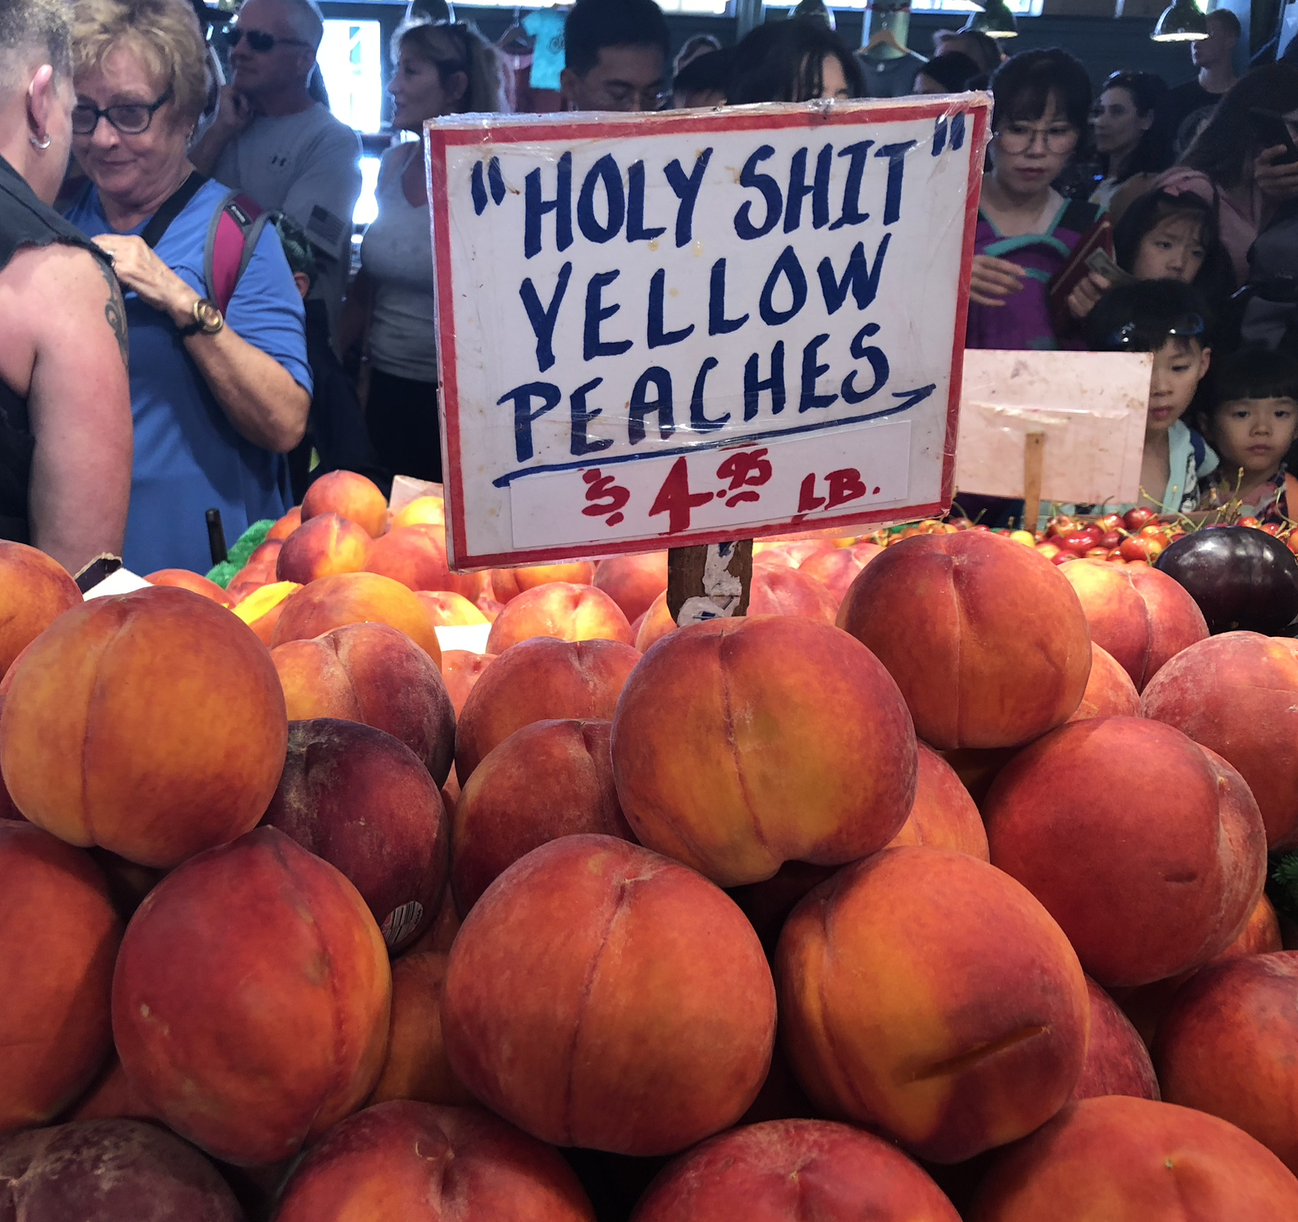 "HOLY SHIT"
YELLOW
PEACHES
$4.95 LB.